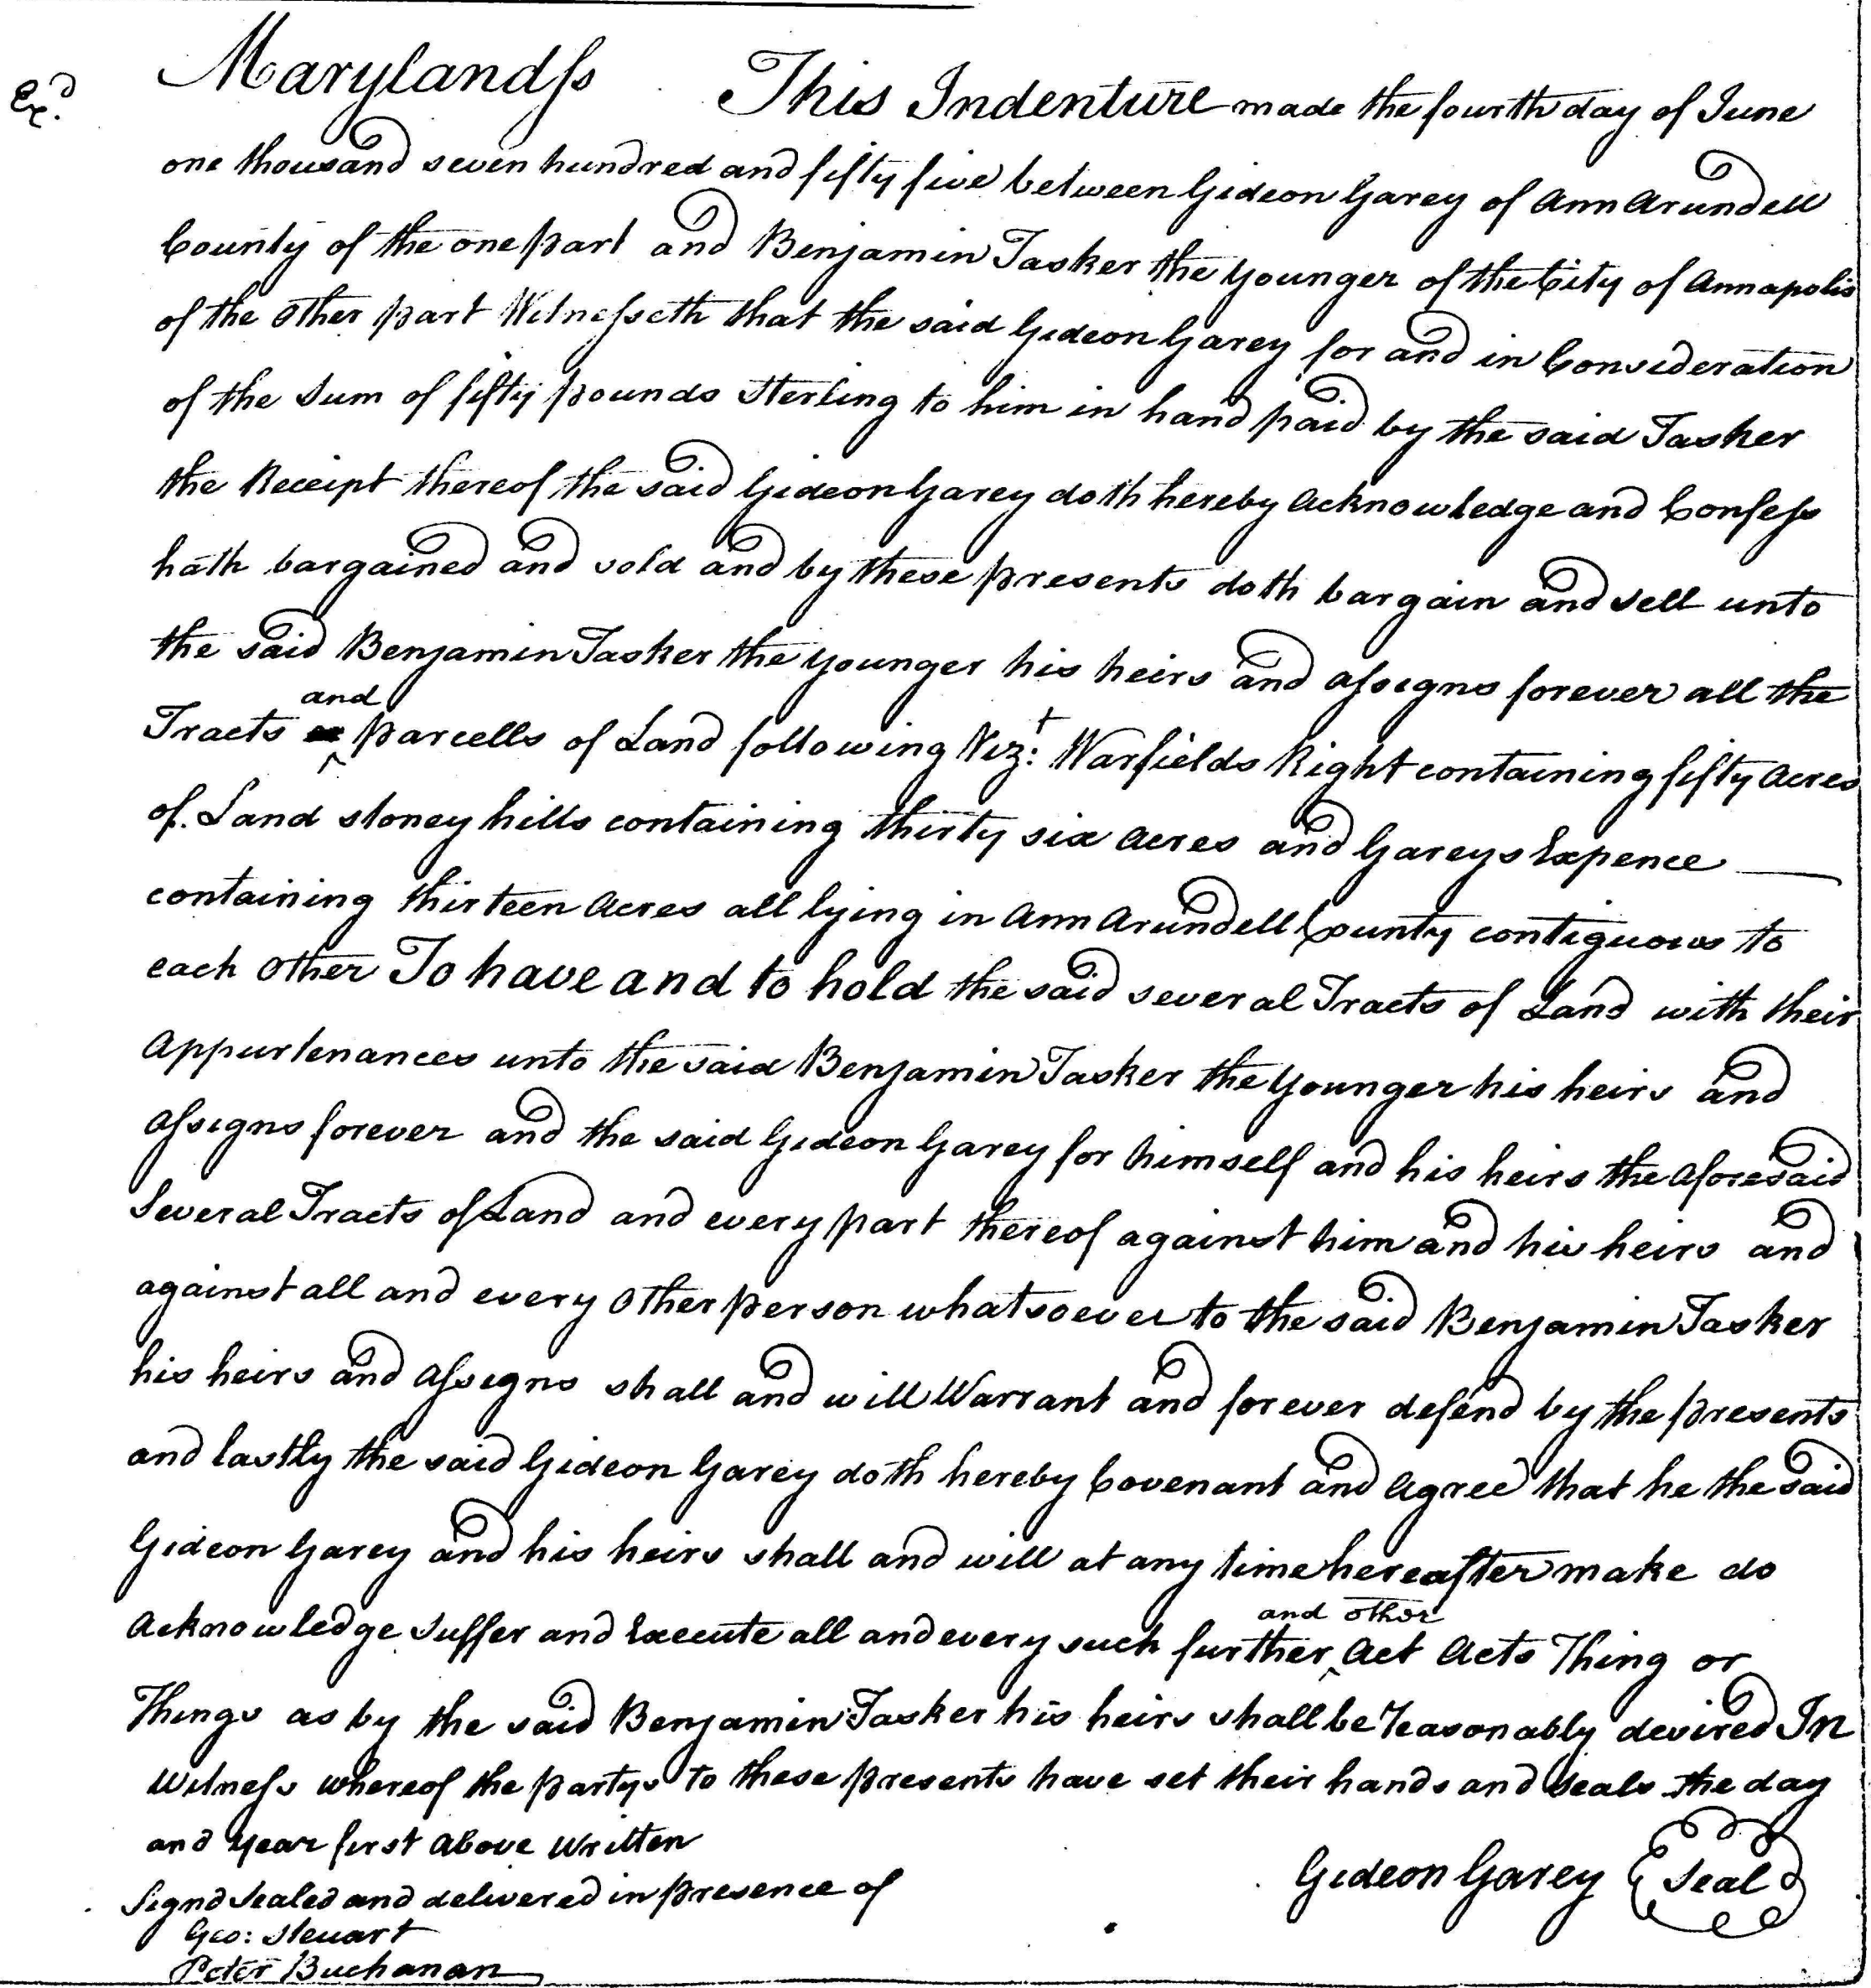 Ex.d
Maryland ss This Indenture made the fourth day of June
one thousand seven hundred and fifty five between Gideon Garey of Ann Arundell
County of the one part and Benjamin Tasker the younger of the City of Annapolis
of the other part Witnesseth that the said Gideon Garey for and in Consideration
of the Sum of fifty pounds Sterling to him in hand paid by the said Tasker
the Receipt thereof the said Gideon Garey doth hereby acknowledge and Confess
hath bargained and sold and by these presents doth bargain and sell unto
the said Benjamin Tasker the younger his heirs and assigns forever all the
and
Tracts parcells of Land following Viz.t Warfields Right containing fifty acres
of Land stoney hills containing thirty six acres and Gareys Expence
containing thirteen acres all lying in Ann Arundell County contiguous to
each other To have and to hold the said several Tracts of Land with their
appurtenances unto the said Benjamin Tasker the Younger his heirs and
assigns forever and the said Gideon Garey for himself and his heirs the aforesaid
Several Tracts of Land and every part thereof against him and his heirs and
against all and every other person whatsoever to the said Benjamin Tasker
his heirs and assigns shall and will Warrant and forever defend by the presents
and lastly the said Gideon Garey doth hereby Covenant and agree that he the said
Gideon Garey and his heirs shall and will at any time hereafter make do
and other
acknowledge suffer and Execute all and every such further Act Acts Thing or
Things as by the said Benjamin Tasker his heirs shall be reasonably desired In
Witness whereof the partys to these presents have set their hands and seals the day
and year first above written
Signd Sealed and delivered in presence of
Gideon Garey Seal
Geo: Steuart
Peter Buchanan